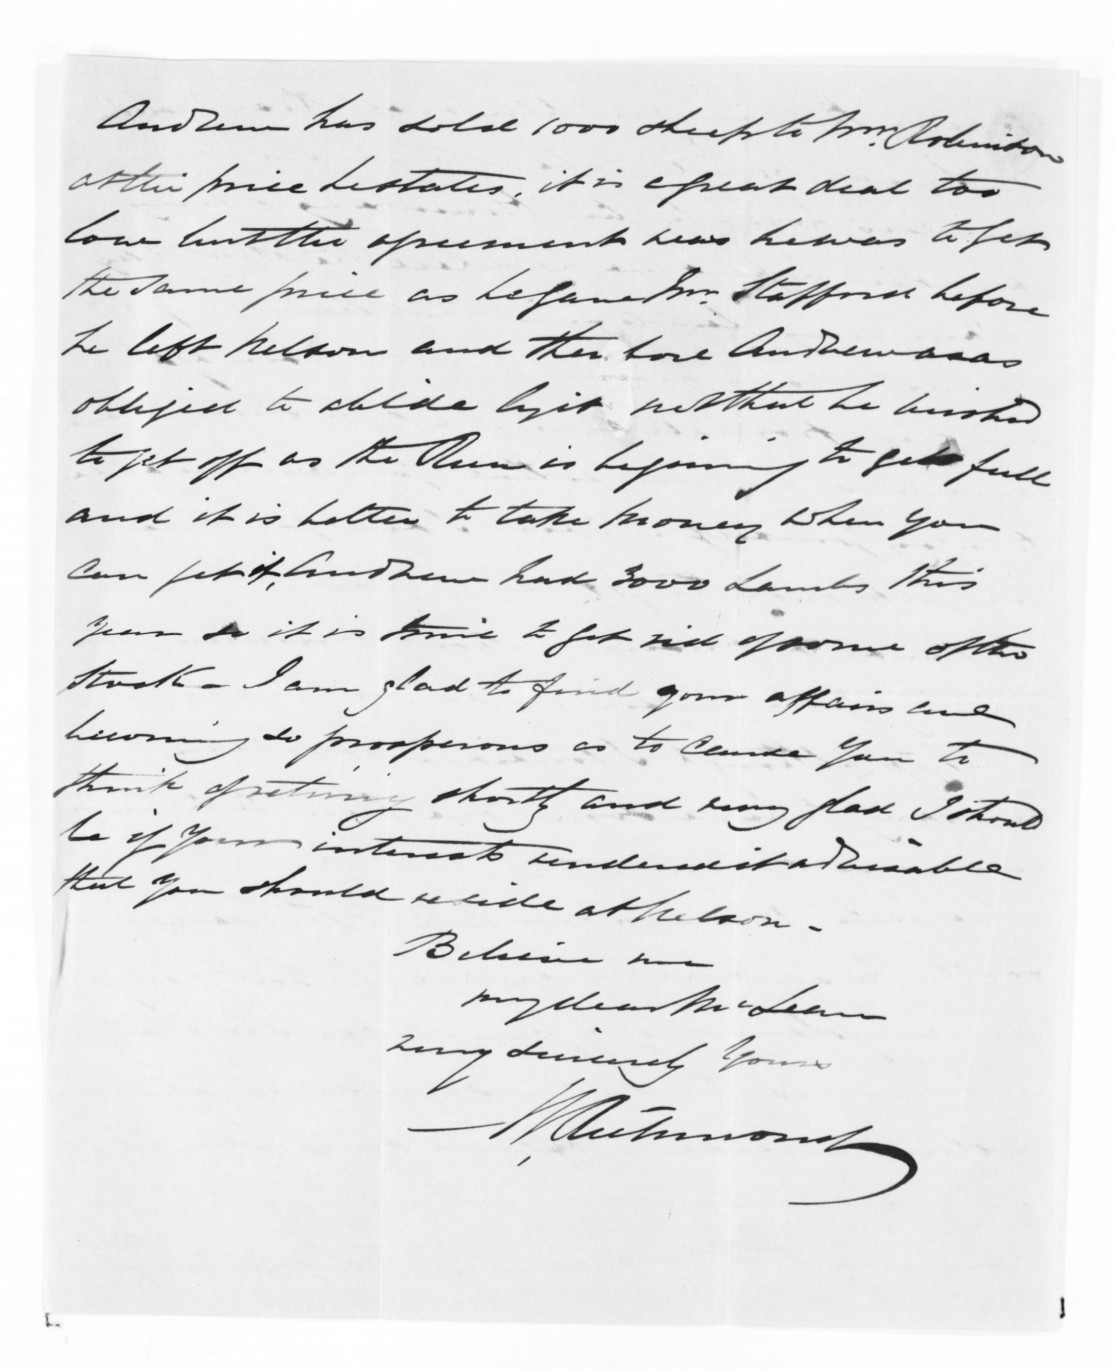 Andrew has sold 1000 sheep to Mr. Robinson
at the price he states. it is a great deal too
low but the agreement was he was to get
the same price as he gave Mr. Stafford before
he left Nelson and therefore Andrew was
obliged to abide by it not that he wished
to get off as the Run is begining to get full
and it is better to take money when you
can get it, Andrew had 3000 Lambs this
year so it is time to get rid of some of the
stock - I am glad to find your affairs are
becoming so prosperous as to cause you to
think of retiring shortly and very glad I should
be if your interests rendered it advisable
that you should reside at Nelson -
Believe me
my dear McLean
very sincerely yours
Richmond